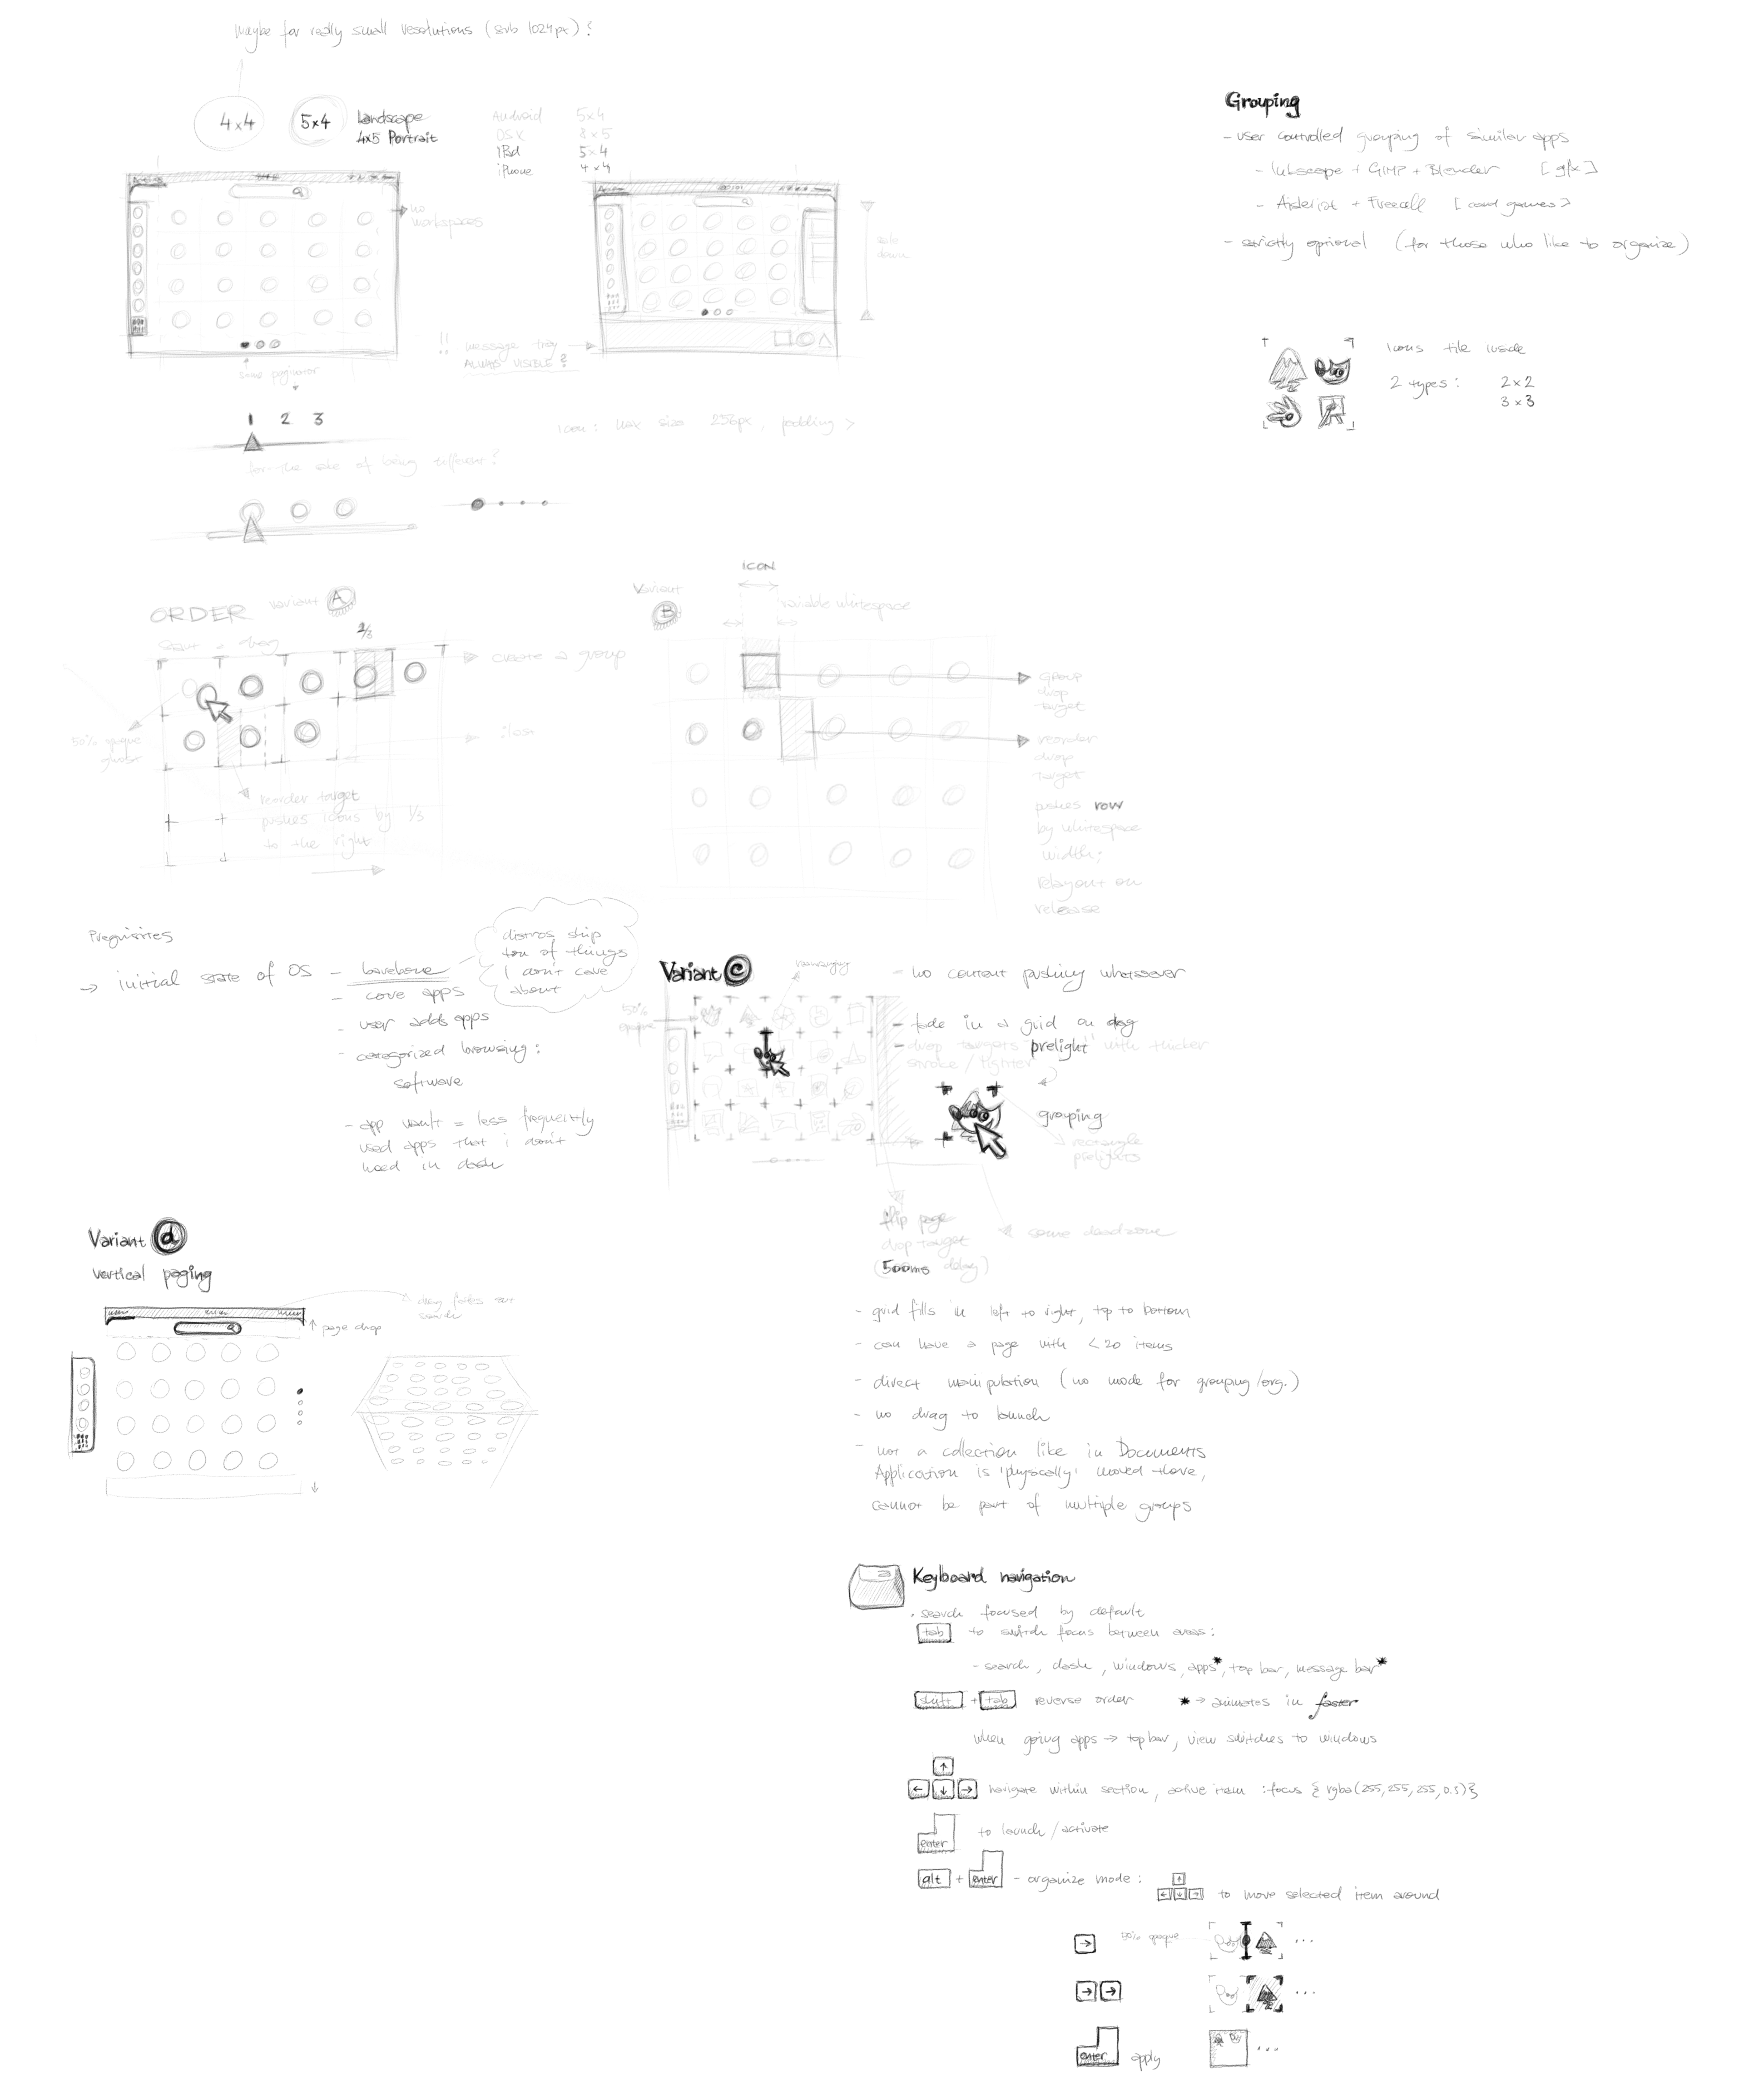 maybe for really small resolutions (sub 1024px)?
4x4
5x4
Landscape
4x5 Portrait
Android 5x4
OSX 8x5
iPad 5x4
iPhone 4x4
no
workspaces
message tray
ALWAYS VISIBLE?
down
same paginator
1 2 3
for the sake of being different?
icon: max size 256px, padding >
Grouping
- user controlled grouping of similar apps
- Inkscape + GIMP + Blender [gfx]
- Aisleriot + Freecell [card games]
- strictly optional (for those who like to organize)
icons tile inside
2 types: 2x2
3x3
ORDER variant A
1/3
create a group
50% opaque
ghost
reorder target
pushes icons by 1/3
to the right
Variant
B
ICON
variable whitespace
group
drop
target
reorder
drop
target
pushes row
by whitespace
width;
relayout on
release
Prequisities
→ initial state of OS - barebone
- core apps
- user adds apps
- categorized browsing:
software
- app vault = less frequently
used apps that i don't
need in dash
distros ship
ton of things
I don't care
about
Variant C
rearranging
50%
opaque
- no content pushing whatsoever
- fade in a grid on drag
- drop targets "prelight" with thicker
stroke / lighter
grouping
rectangle
prelights
flip page
drop target
(500ms delay)
some deadzone
- grid fills in left to right, top to bottom
- can have a page with <20 items
- direct manipulation (no mode for grouping/org.)
- no drag to launch
- not a collection like in Documents
Application is 'physically' moved there,
cannot be part of multiple groups
Variant d
vertical paging
page drop
search
Keyboard navigation
. search focused by default
tab to switch focus between areas:
- search, dash, windows, apps*, top bar, message bar*
shift + tab reverse order * → animates in faster
when going apps → top bar, view switches to windows
↑
← ↓ → navigate within section, active item :focus { rgba(255,255,255,0.5)}
enter to launch / activate
alt + enter - organize mode:
↑
← ↓ → to move selected item around
→ 50% opaque ...
→ → ...
enter apply ...